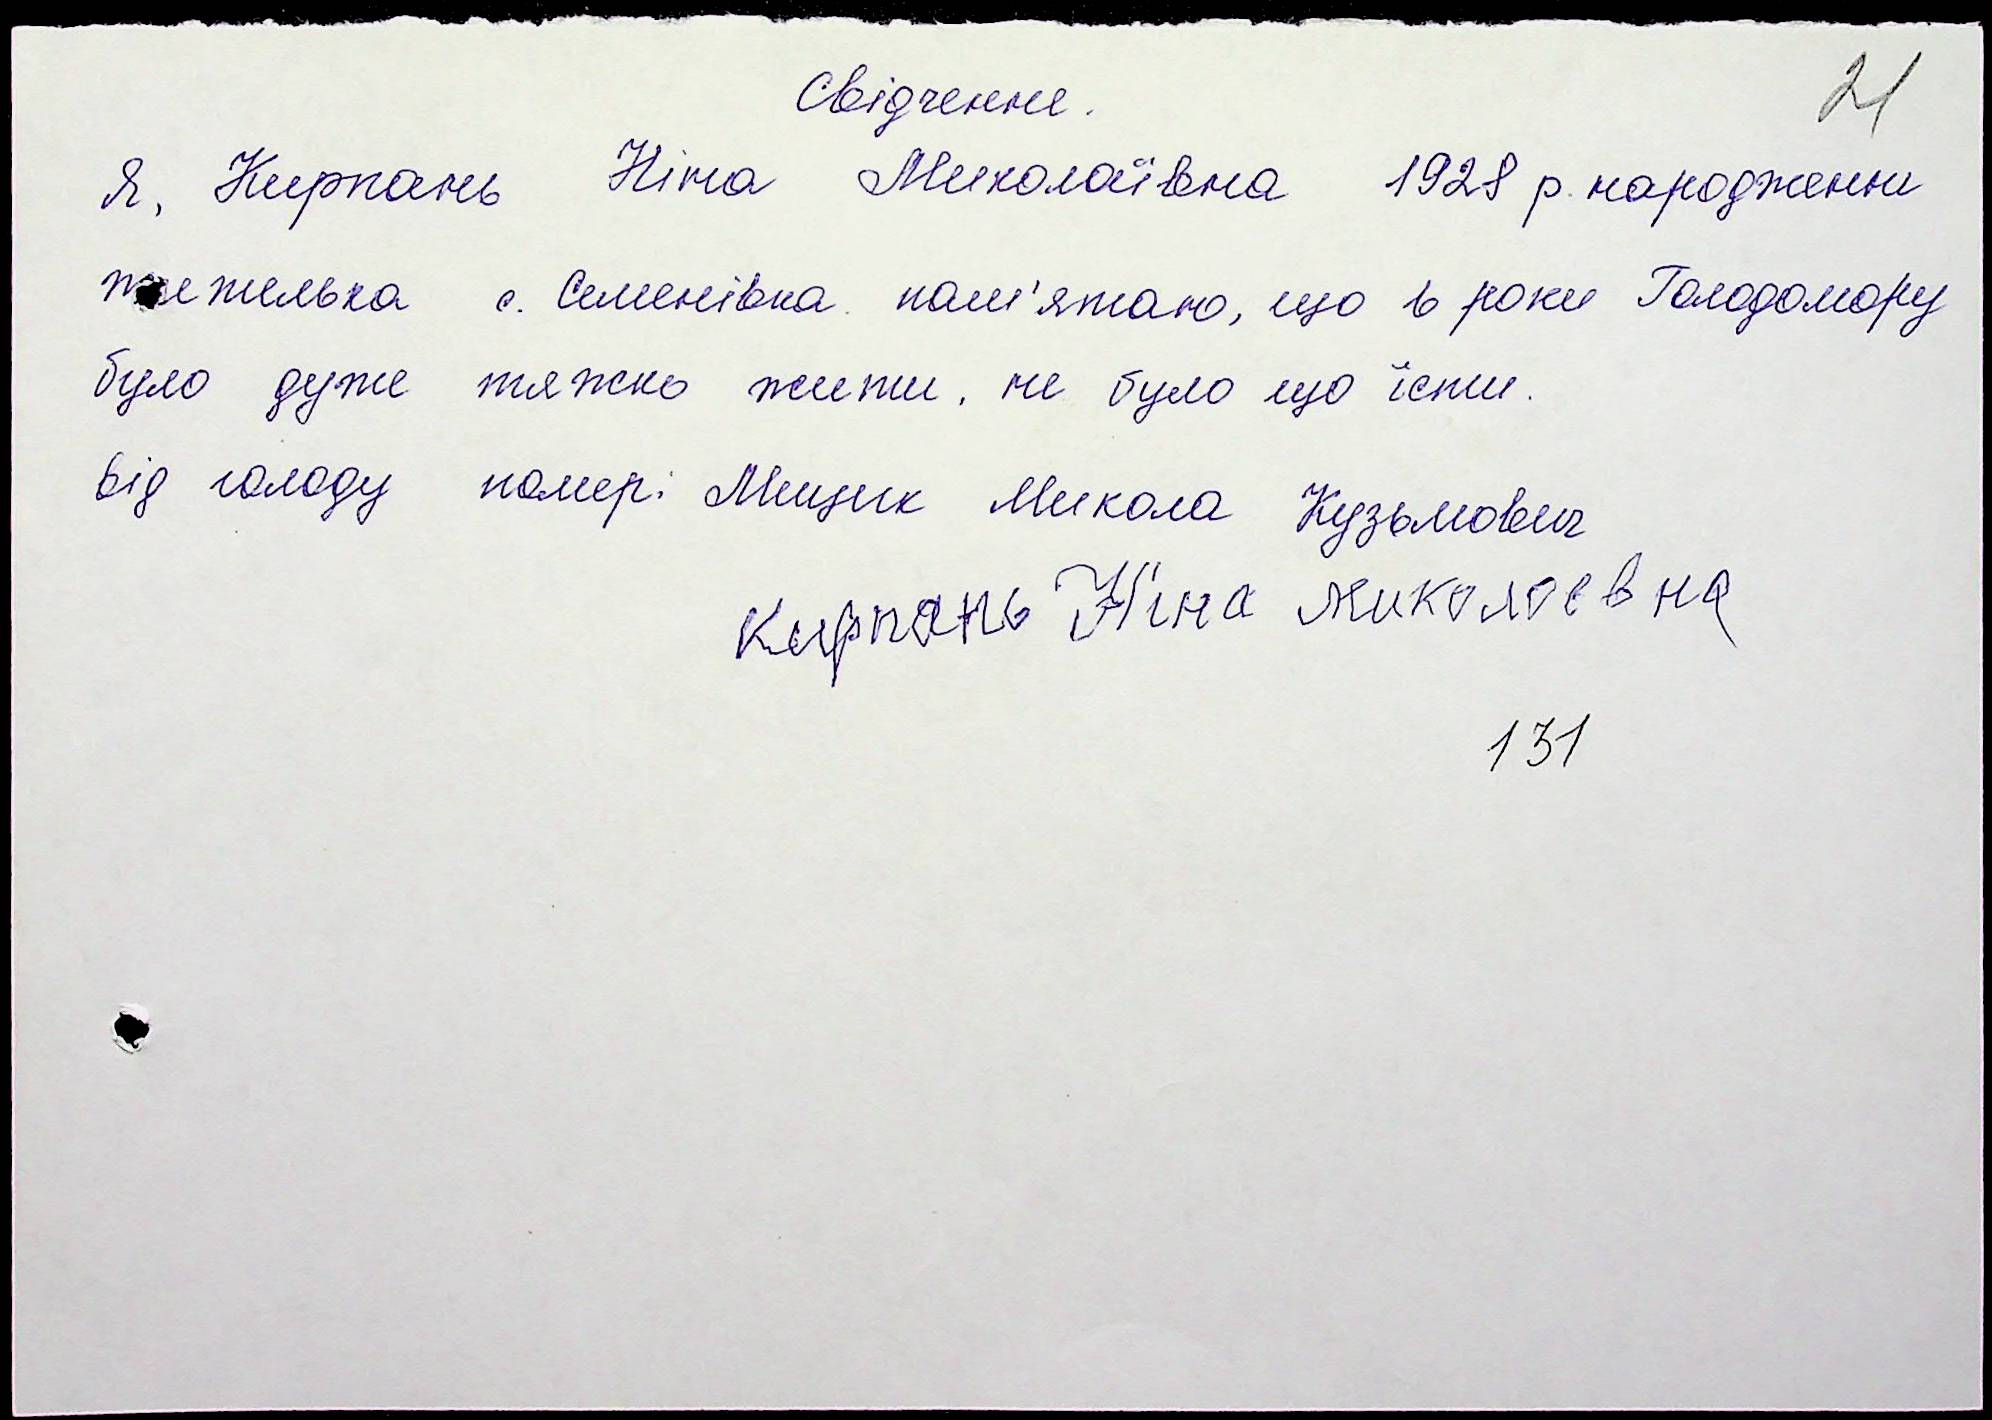 21
Свідчення.
Я, Кирпань Ніна Миколаївна 1928 р. народження
жителька с. Семенівка пам'ятаю, що в роки Голодомору
було дуже тяжко жити, не було що їсти.
від голоду помер: Мицик Микола Кузьмович
Кирпань Ніна Миколаєвна
131